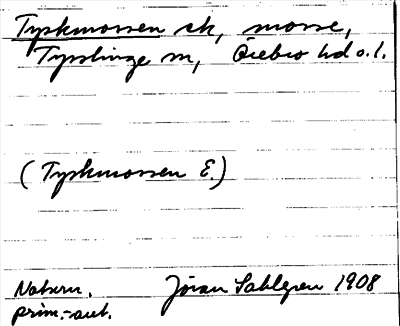 Tyskmossen sk, mosse,
Tysslinge sn, Örebro hd o. l.
(Tyskmossen E.)
Naturn. Jöran Sahlgren 1908
prim.-aut.